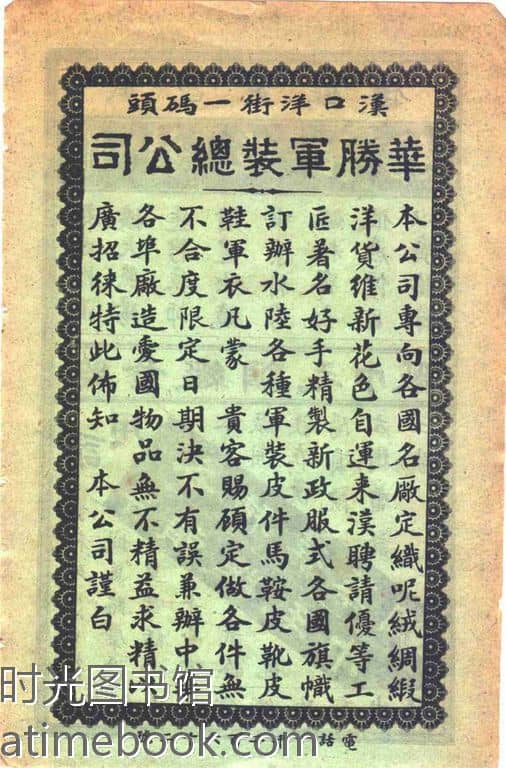 漢口洋街一碼頭
華勝軍裝總公司
本公司專向各國名廠定織呢絨綢緞
洋貨維新花色自運來漢聘請優等工
匠著名好手精製新政服式各國旗幟
訂辦水陸各種軍裝皮件馬鞍皮靴皮
鞋軍衣凡蒙 貴客賜顧定做各件無
不合度限定日期決不有誤兼辦中
各埠廠造愛國物品無不精益求精
廣招徠特此佈知 本公司謹白
電話
时光图书馆
atimebook.com